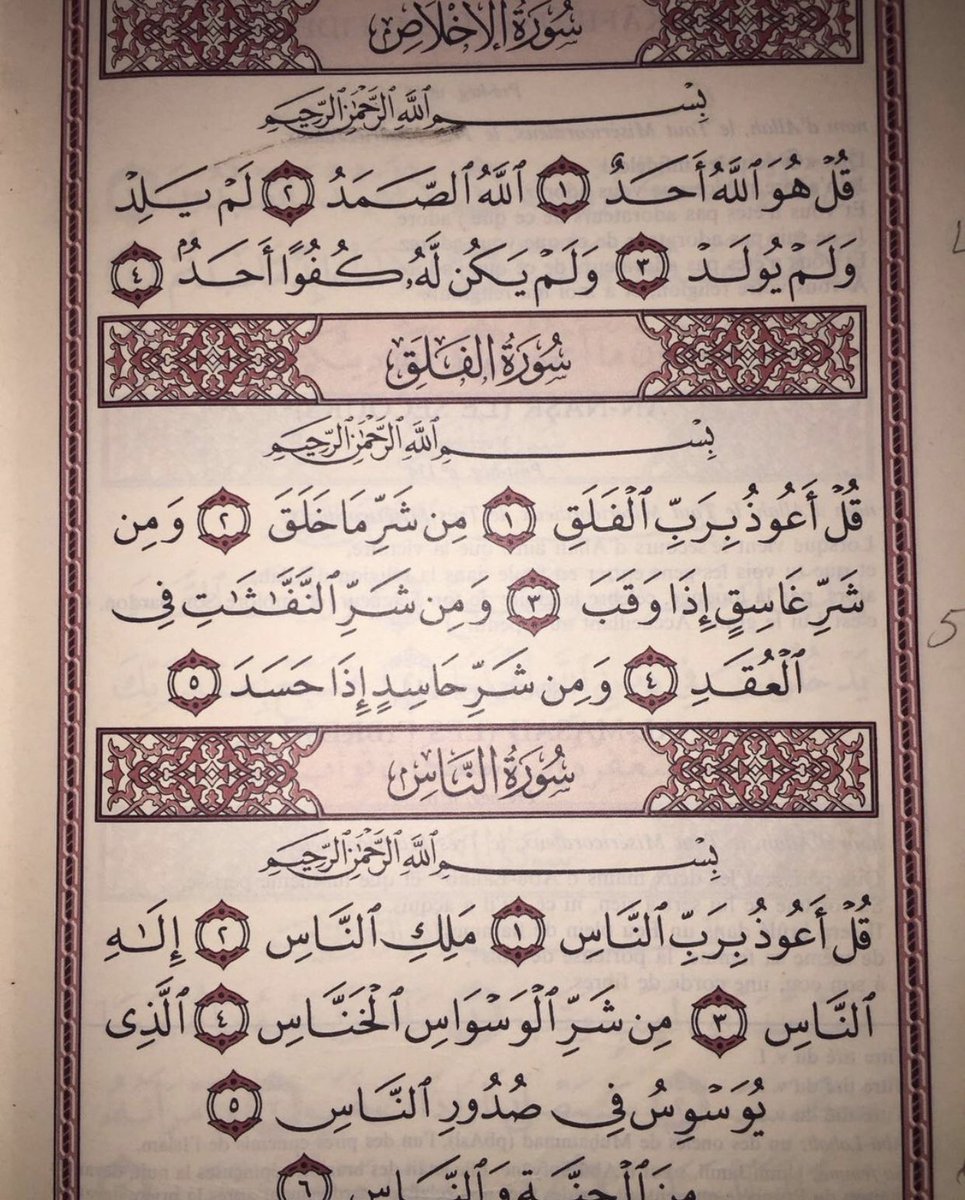 سُورَةُ الإِخْلَاصِ
بِسْمِ ٱللَّهِ ٱلرَّحْمَٰنِ ٱلرَّحِيمِ
قُلْ هُوَ ٱللَّهُ أَحَدٌ ١ ٱللَّهُ ٱلصَّمَدُ ٢ لَمْ يَلِدْ
وَلَمْ يُولَدْ ٣ وَلَمْ يَكُن لَّهُۥ كُفُوًا أَحَدٌۢ ٤
سُورَةُ الفَلَقِ
بِسْمِ ٱللَّهِ ٱلرَّحْمَٰنِ ٱلرَّحِيمِ
قُلْ أَعُوذُ بِرَبِّ ٱلْفَلَقِ ١ مِن شَرِّ مَا خَلَقَ ٢ وَمِن
شَرِّ غَاسِقٍ إِذَا وَقَبَ ٣ وَمِن شَرِّ ٱلنَّفَّٰثَٰتِ فِى
5
ٱلْعُقَدِ ٤ وَمِن شَرِّ حَاسِدٍ إِذَا حَسَدَ ٥
سُورَةُ النَّاسِ
بِسْمِ ٱللَّهِ ٱلرَّحْمَٰنِ ٱلرَّحِيمِ
قُلْ أَعُوذُ بِرَبِّ ٱلنَّاسِ ١ مَلِكِ ٱلنَّاسِ ٢ إِلَٰهِ
ٱلنَّاسِ ٣ مِن شَرِّ ٱلْوَسْوَاسِ ٱلْخَنَّاسِ ٤ ٱلَّذِى
يُوَسْوِسُ فِى صُدُورِ ٱلنَّاسِ ٥
مِنَ ٱلْجِنَّةِ وَٱلنَّاسِ ٦